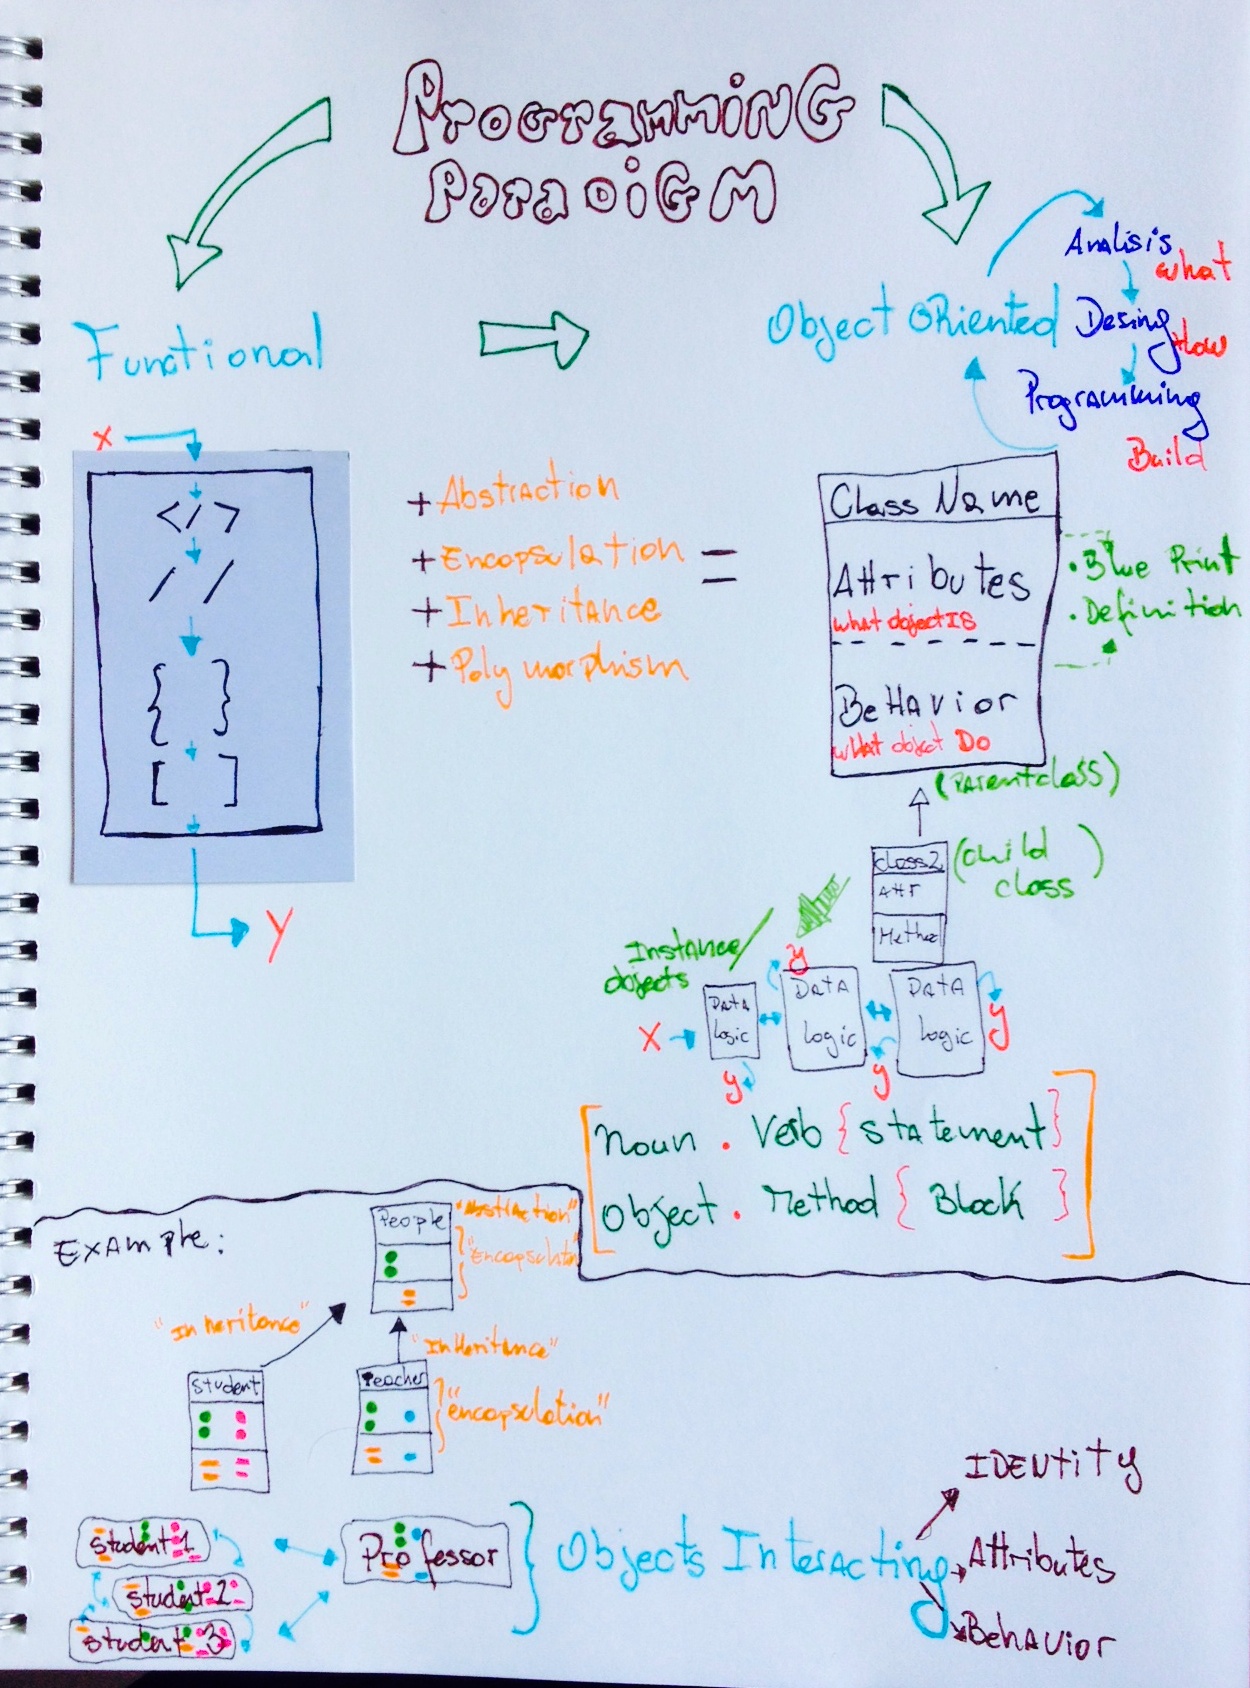 Programming
Paradigm
Functional
Object Oriented
Analisis
what
Desing
How
Programming
Build
x
</>
/ /
{ }
[ ]
y
+ Abstraction
+ Encapsulation
+ Inheritance
+ Polymorphism
=
Class Name
Attributes
what object IS
Behavior
what object Do
• Blue Print
• Definition
(Parent class)
class2
Attr
Method
(child
class)
Instance/
objects
x
Data
Logic
y
y
Data
Logic
y
Data
Logic
y
[Noun . Verb {statement}
Object . Method { Block }]
Example:
People
"Abstraction"
"Encapsulation"
"Inheritance"
"Inheritance"
Student
Teacher
"encapsulation"
Student 1
Student 2
Student 3
Professor
} Objects Interacting
IDENtity
Attributes
Behavior